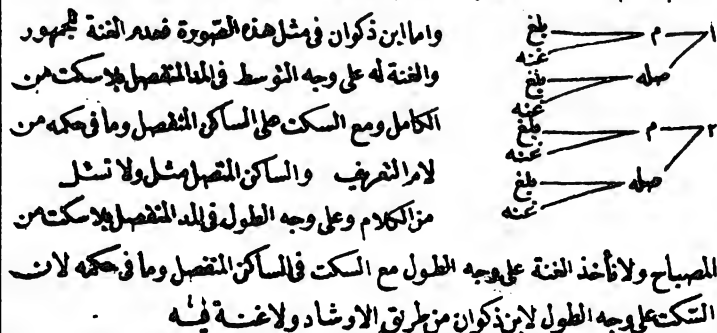 واما ابن ذكوان فى مثل هذه الصورة فعدم الغنة للجمهور
والغنة له على وجه التوسط فى المد المنفصل بلا سكت من
الكامل ومع السكت على الساكن المنفصل وما فى حكمه من
لام التعريف والساكن المتصل مثل ولا تسئل
من الكلام وعلى وجه الطول فى المد المنفصل بلا سكت من
المصباح ولا نأخذ الغنة على وجه الطول مع السكت فى الساكن المنفصل وما فى حكمه لان
السكت على وجه الطول لابن ذكوان من طريق الارشاد ولا غنة فيه
١ م بلغ
غنه
صله بلغ
غنه
٢ م بلغ
غنه
صله بلغ
غنه